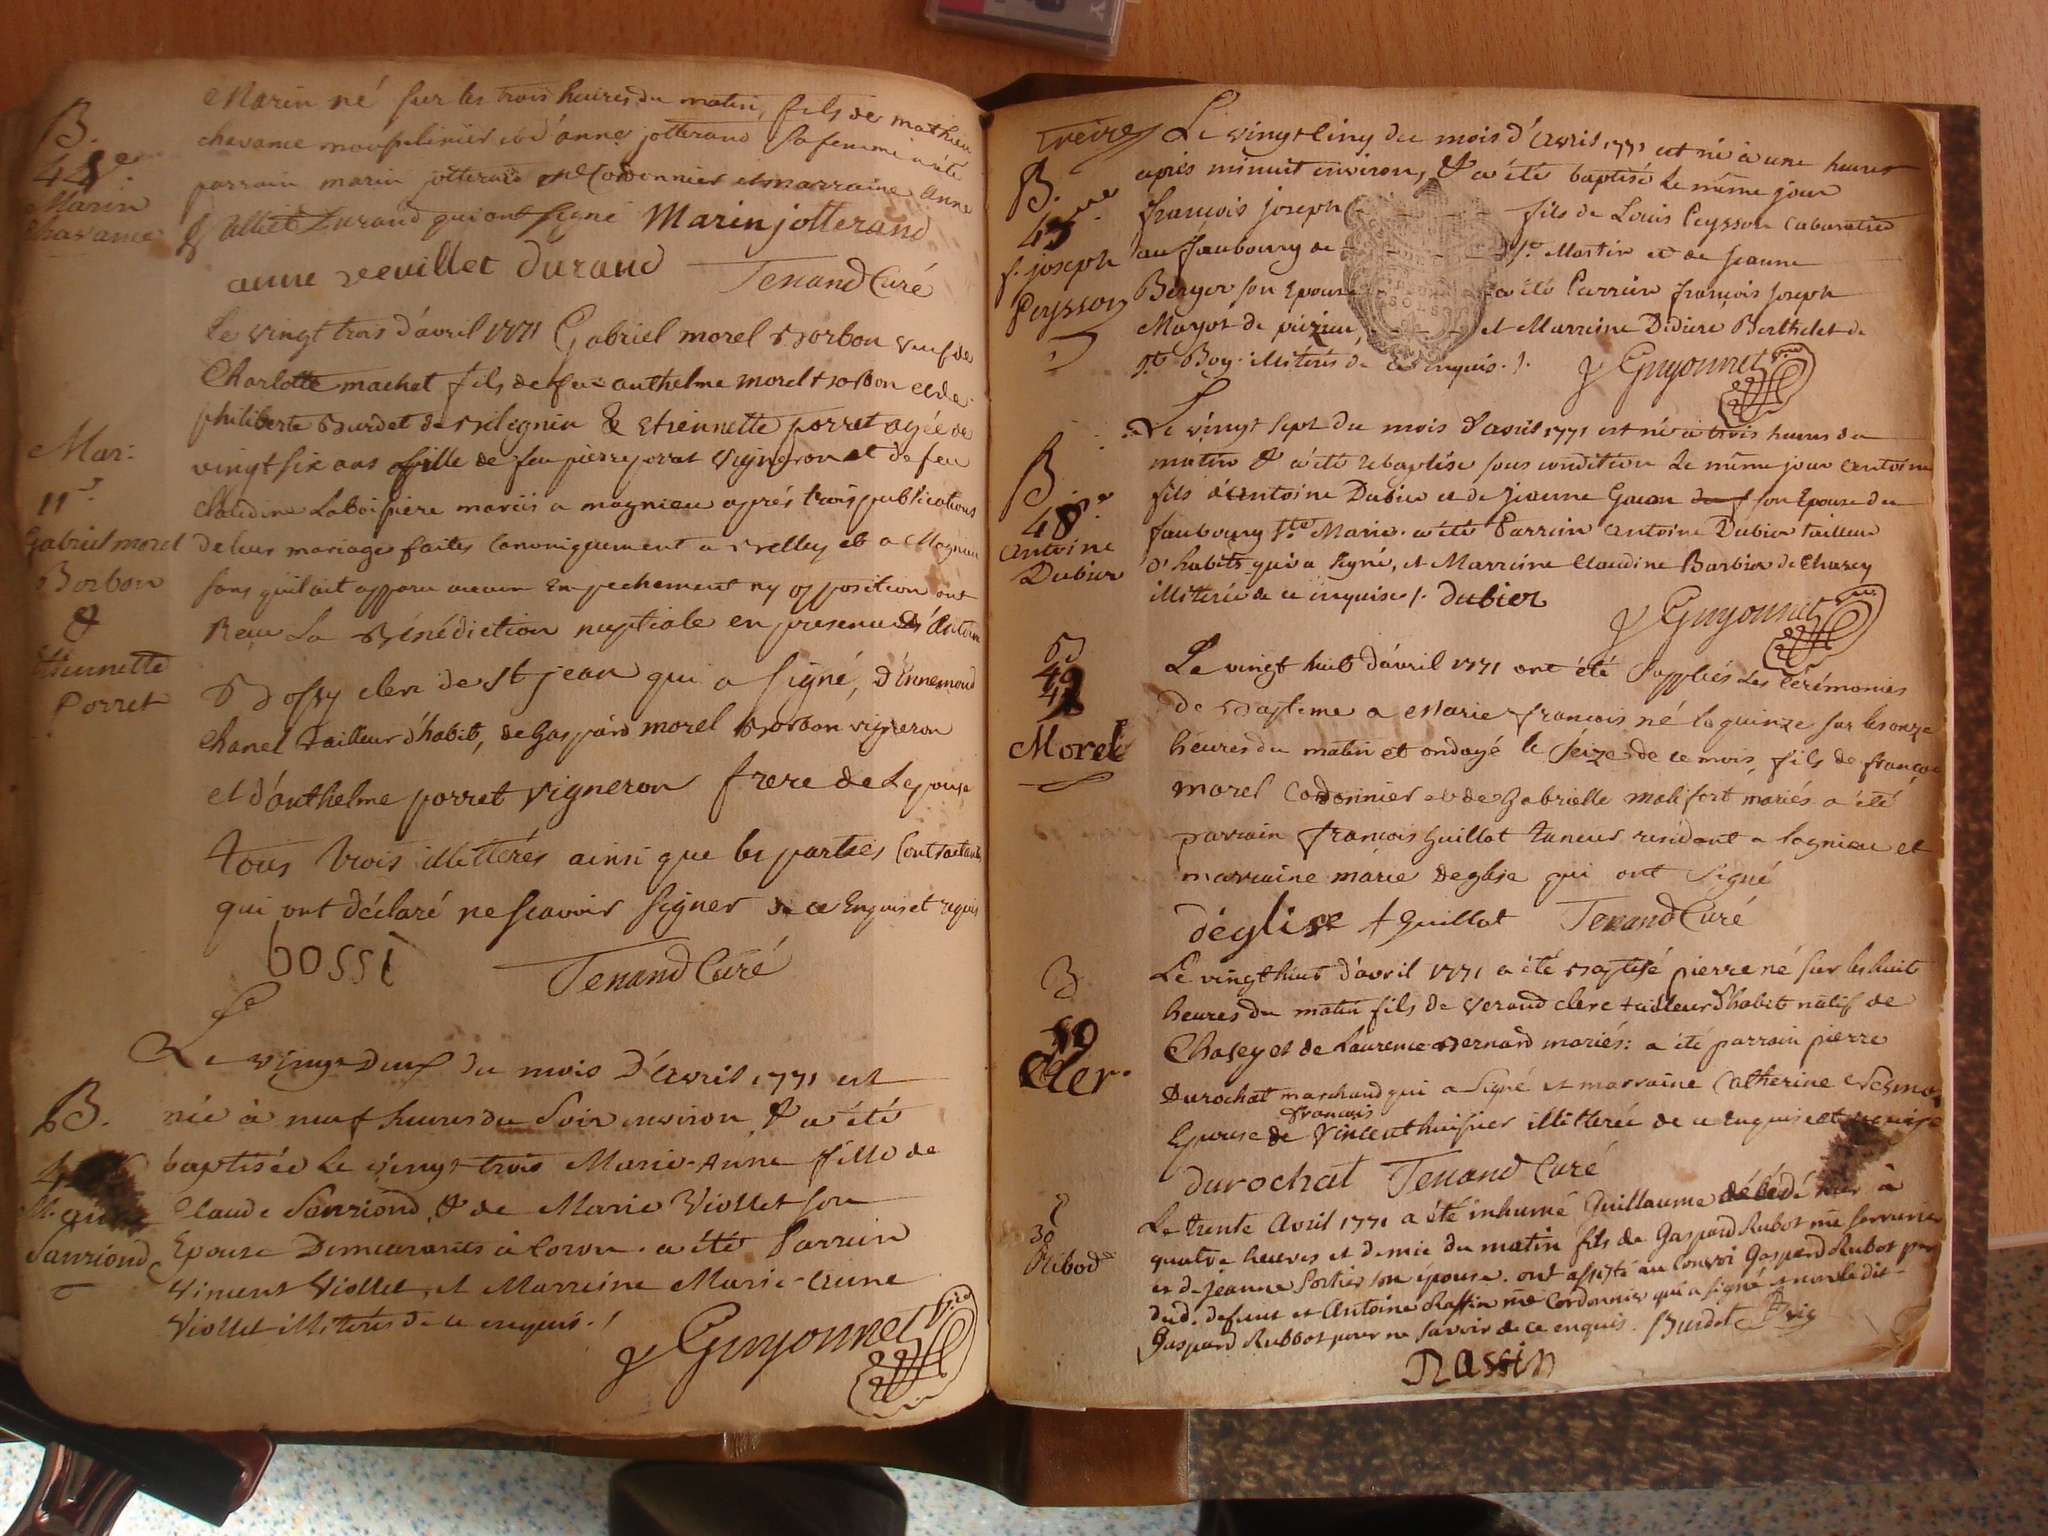 B.
44e
Marin
Chavame
Marin né sur les trois heures du matin, fils de mathieu
chavame et d'anne jotterand sa femme a été
parrain marin jotterand Cordonnier et marraine anne
durand qui ont signé Marin jotterand
anne durand Tenand Curé
Mar:
11e
Gabriel morel
Borbon
&
Etiennette
Porret
Le vingt trois d'avril 1771 Gabriel morel Borbon veuf de
Charlotte machet fils de feu anthelme morel Borbon et de
philiberte Burdet de & Etiennette porret agée de
vingt six ans fille de feu pierre porret vigneron et de feu
Claudine mariés a magnieu aprés trois publications
de leur mariage faites Canoniquement a Belley et a Magnieu
sans qu'il ait apparu aucun Empechement ny opposition ont
Reçu La Bénédiction nuptiale en presence d'Antoine
Bossy clerc de St jean qui a signé, d'Ennemond
Chanel tailleur d'habits, de Gaspard morel Borbon vigneron
et d'anthelme porret vigneron frere de Lepouse
tous trois illitterés ainsi que les parties Contractantes
qui ont déclaré ne scavoir signer de ce Enquis et requis
bossi Tenand Curé
Le
B.
Sanriond
Le vingt Deux du mois D'avril 1771 est
née à neuf heures du Soir environ, & a été
baptisée Le vingt-trois Marie-Anne fille de
Claude Sanriond, & de Marie Viollet son
Epouse Demeurants à Coron. a été Parrein
Vincent Viollet, et Marreine Marie-Anne
Viollet illiterés de ce enquis./
Guyonnet
B.
47e
f. joseph
Peysson
Le vingt cinq du mois d'Avril 1771 est né à une heure
après minuit environ, & a été baptisé Le même jour
françois joseph fils de Louis Peysson Cabaretier
au fauboury de St. Martin et de jeanne
Berger son Epouse a été Parrein françois joseph
Mayot de et Marreine Didiere Berthelet de
St. Boy. illiterés de ce enquis./.
Guyonnet
B
48e
Antoine
Dubier
Le vingt sept du mois d'avril 1771 est né à trois heures du
matin & a été rebaptisé sous condition Le même jour Antoine
fils d'Antoine Dubier et de jeanne son Epouse du
fauboury Ste Marie. a été Parrein Antoine Dubier tailleur
d'habits qui a signé, et Marreine Claudine Barbier de Chasey
illiterée de ce enquise/. Dubier
Guyonnet
49
Morel
Le vingt huit d'avril 1771 ont été suppléés Les Cerémonies
de Bapteme a Marie françois né le quinze sur les onze
heures du matin et ondoyé le seize de ce mois, fils de françois
morel Cordonnier et de Gabrielle malifort mariés a été
parrain françois Guillot taneur residant a lagnieu et
marraine marie Deglise qui ont signé
déglise f Guillot Tenand Curé
B
50
Cler.
Le vingt huit d'avril 1771 a été Baptisé pierre né sur les huit
heures du matin fils de Verand clerc tailleur d'habit natif de
Chasey et de Laurence Bernard mariés: a été parrain pierre
Durochat marchand qui a signé et marraine Catherine
Epouse de françois Vincent huissier illitterée de ce enquise et requise
durochat Tenand Curé
30
Ribod
Le trente Avril 1771 a été inhumé Guillaume décédé hier à
quatre heures et demie du matin fils de Gaspard Rubot me serrurier
et de Jeanne Sortier son épouse. ont assisté au Convoi Gaspard Rubot pere
dud. defunt et Antoine Rassin me Cordonnier qui a signé et non ledit
Gaspard Rubbot pour ne savoir de ce enquis. Burdet
Rassin